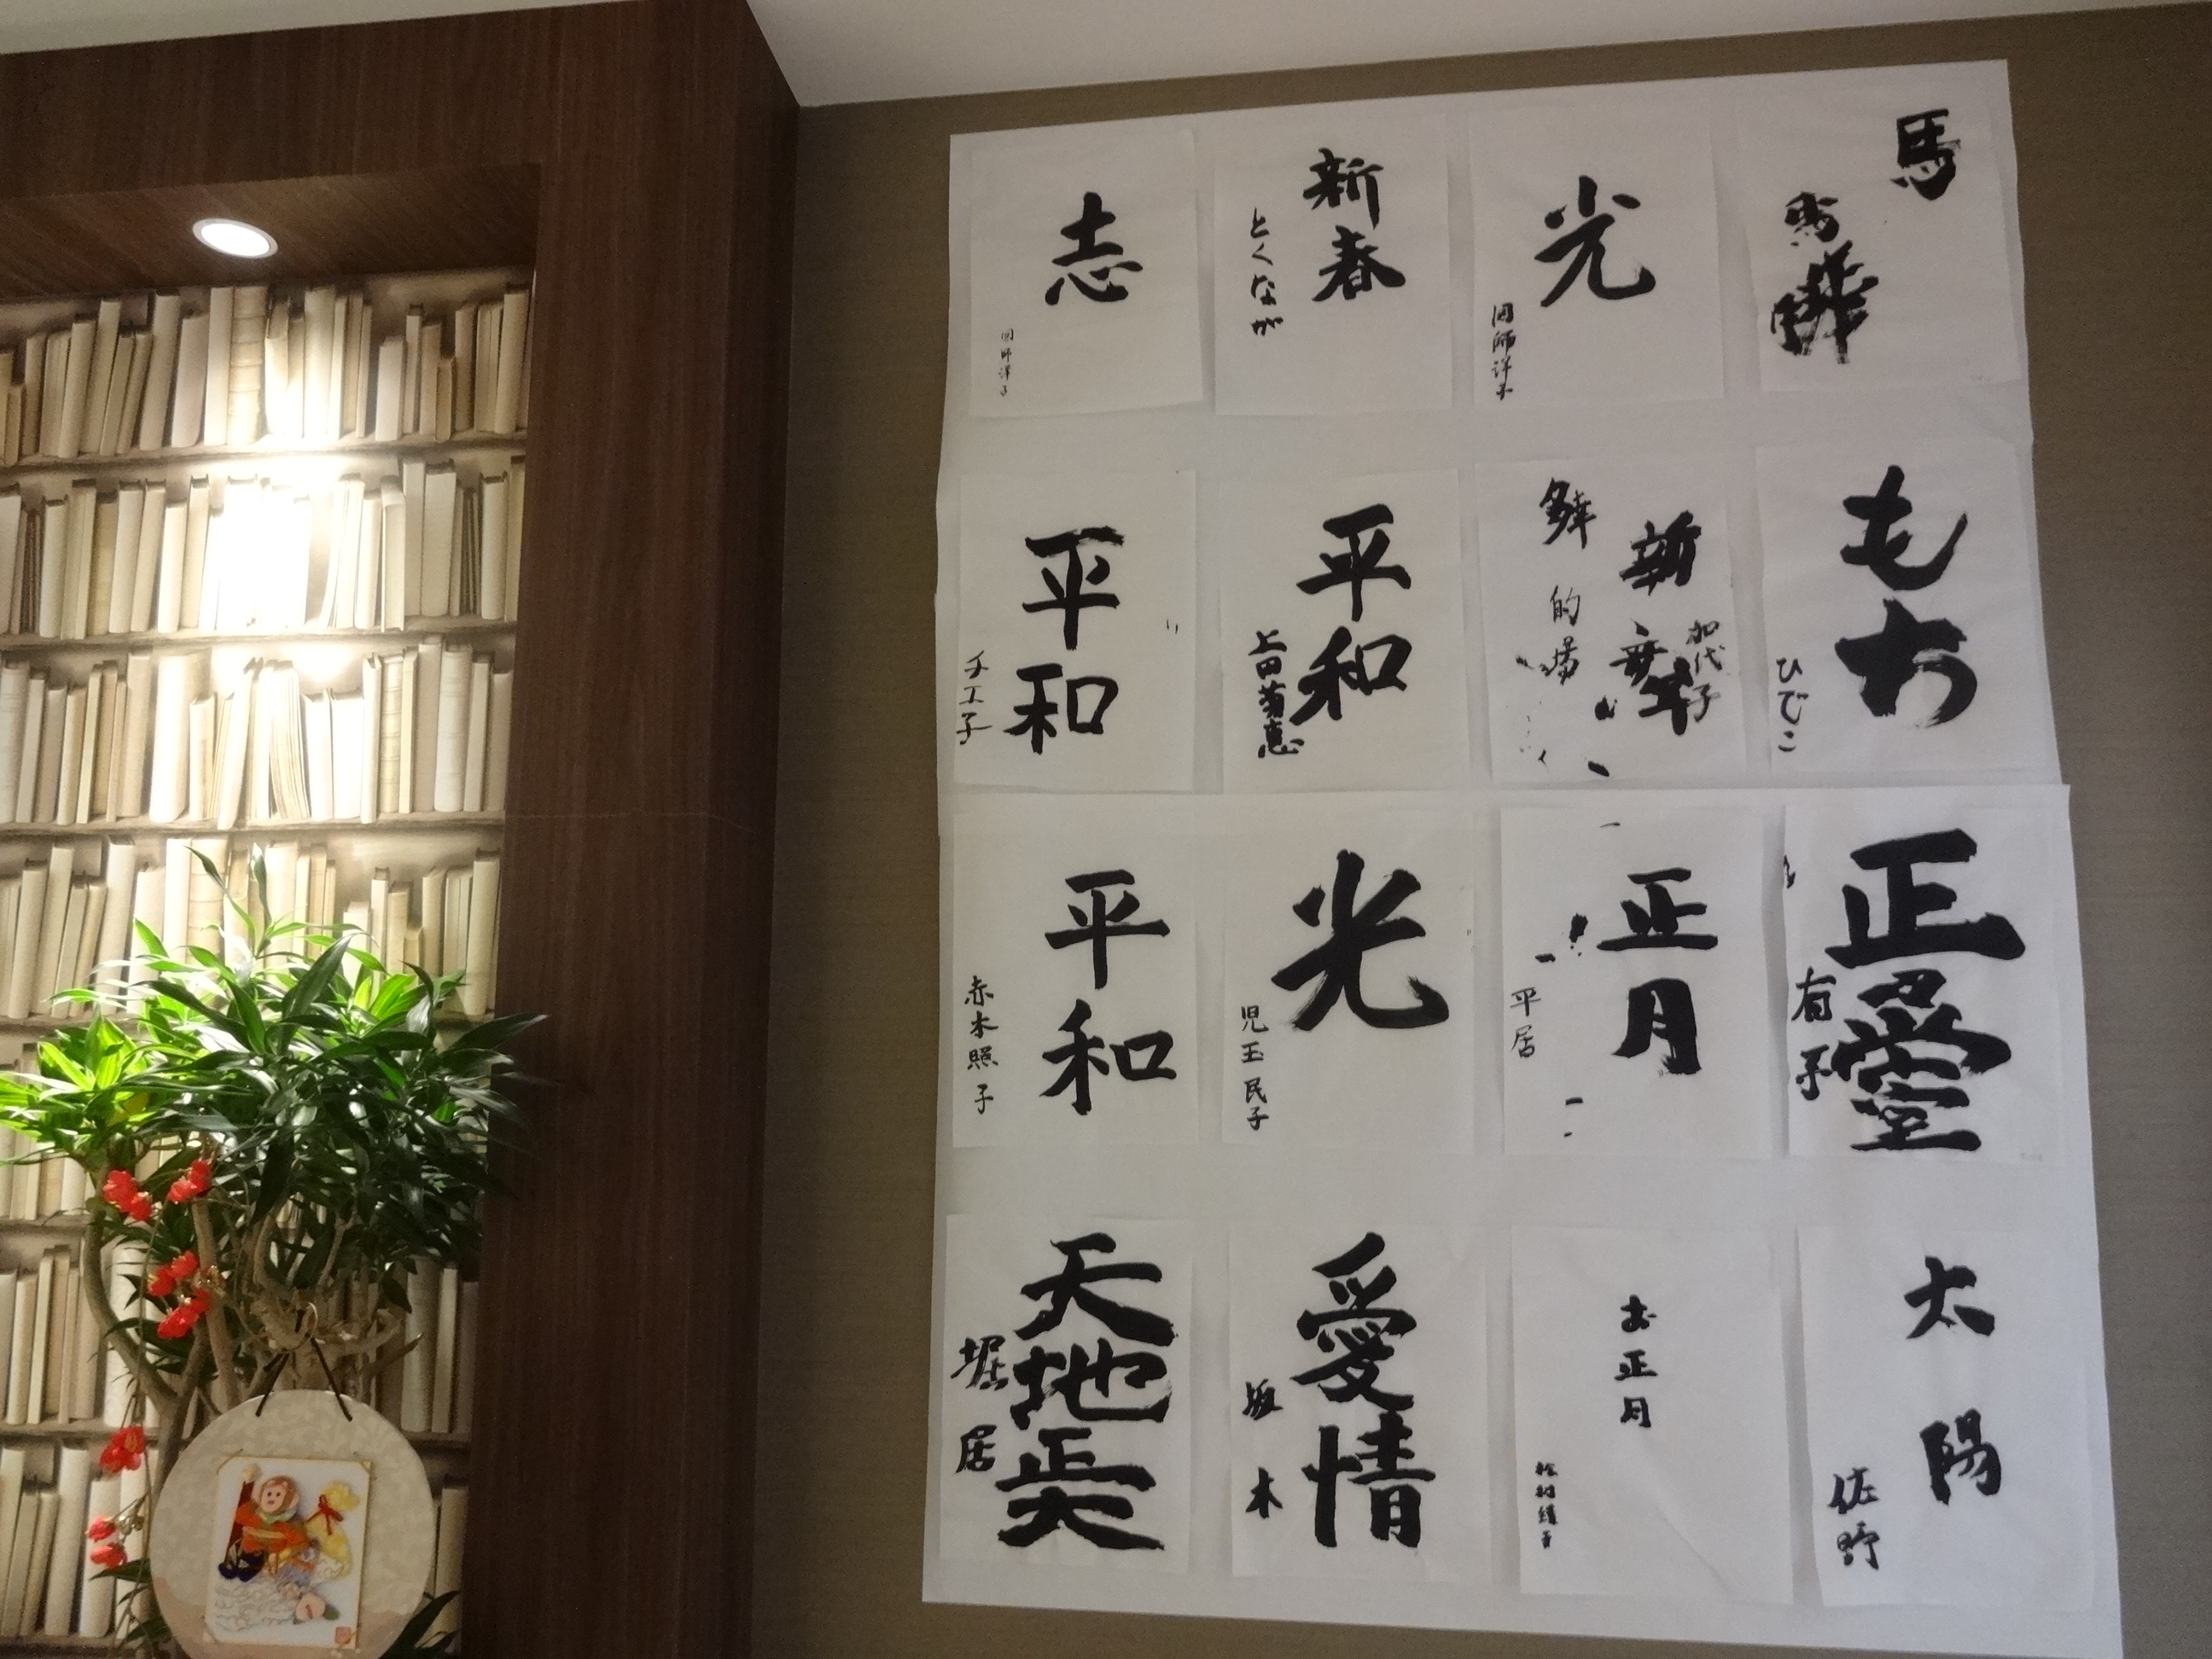 志
図師洋子
新春
とくなが
光
図師洋子
馬
平和
チエ子
平和
上田菊恵
新
加代子
的場
もち
ひでこ
平和
赤木照子
光
児玉民子
正月
平居
正
有子
天地
堀居
愛情
坂木
お正月
太陽
佐野